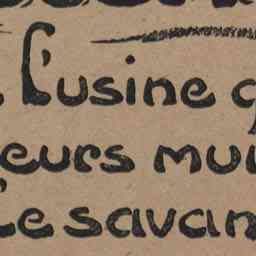 l'usine
eurs mu
le savan